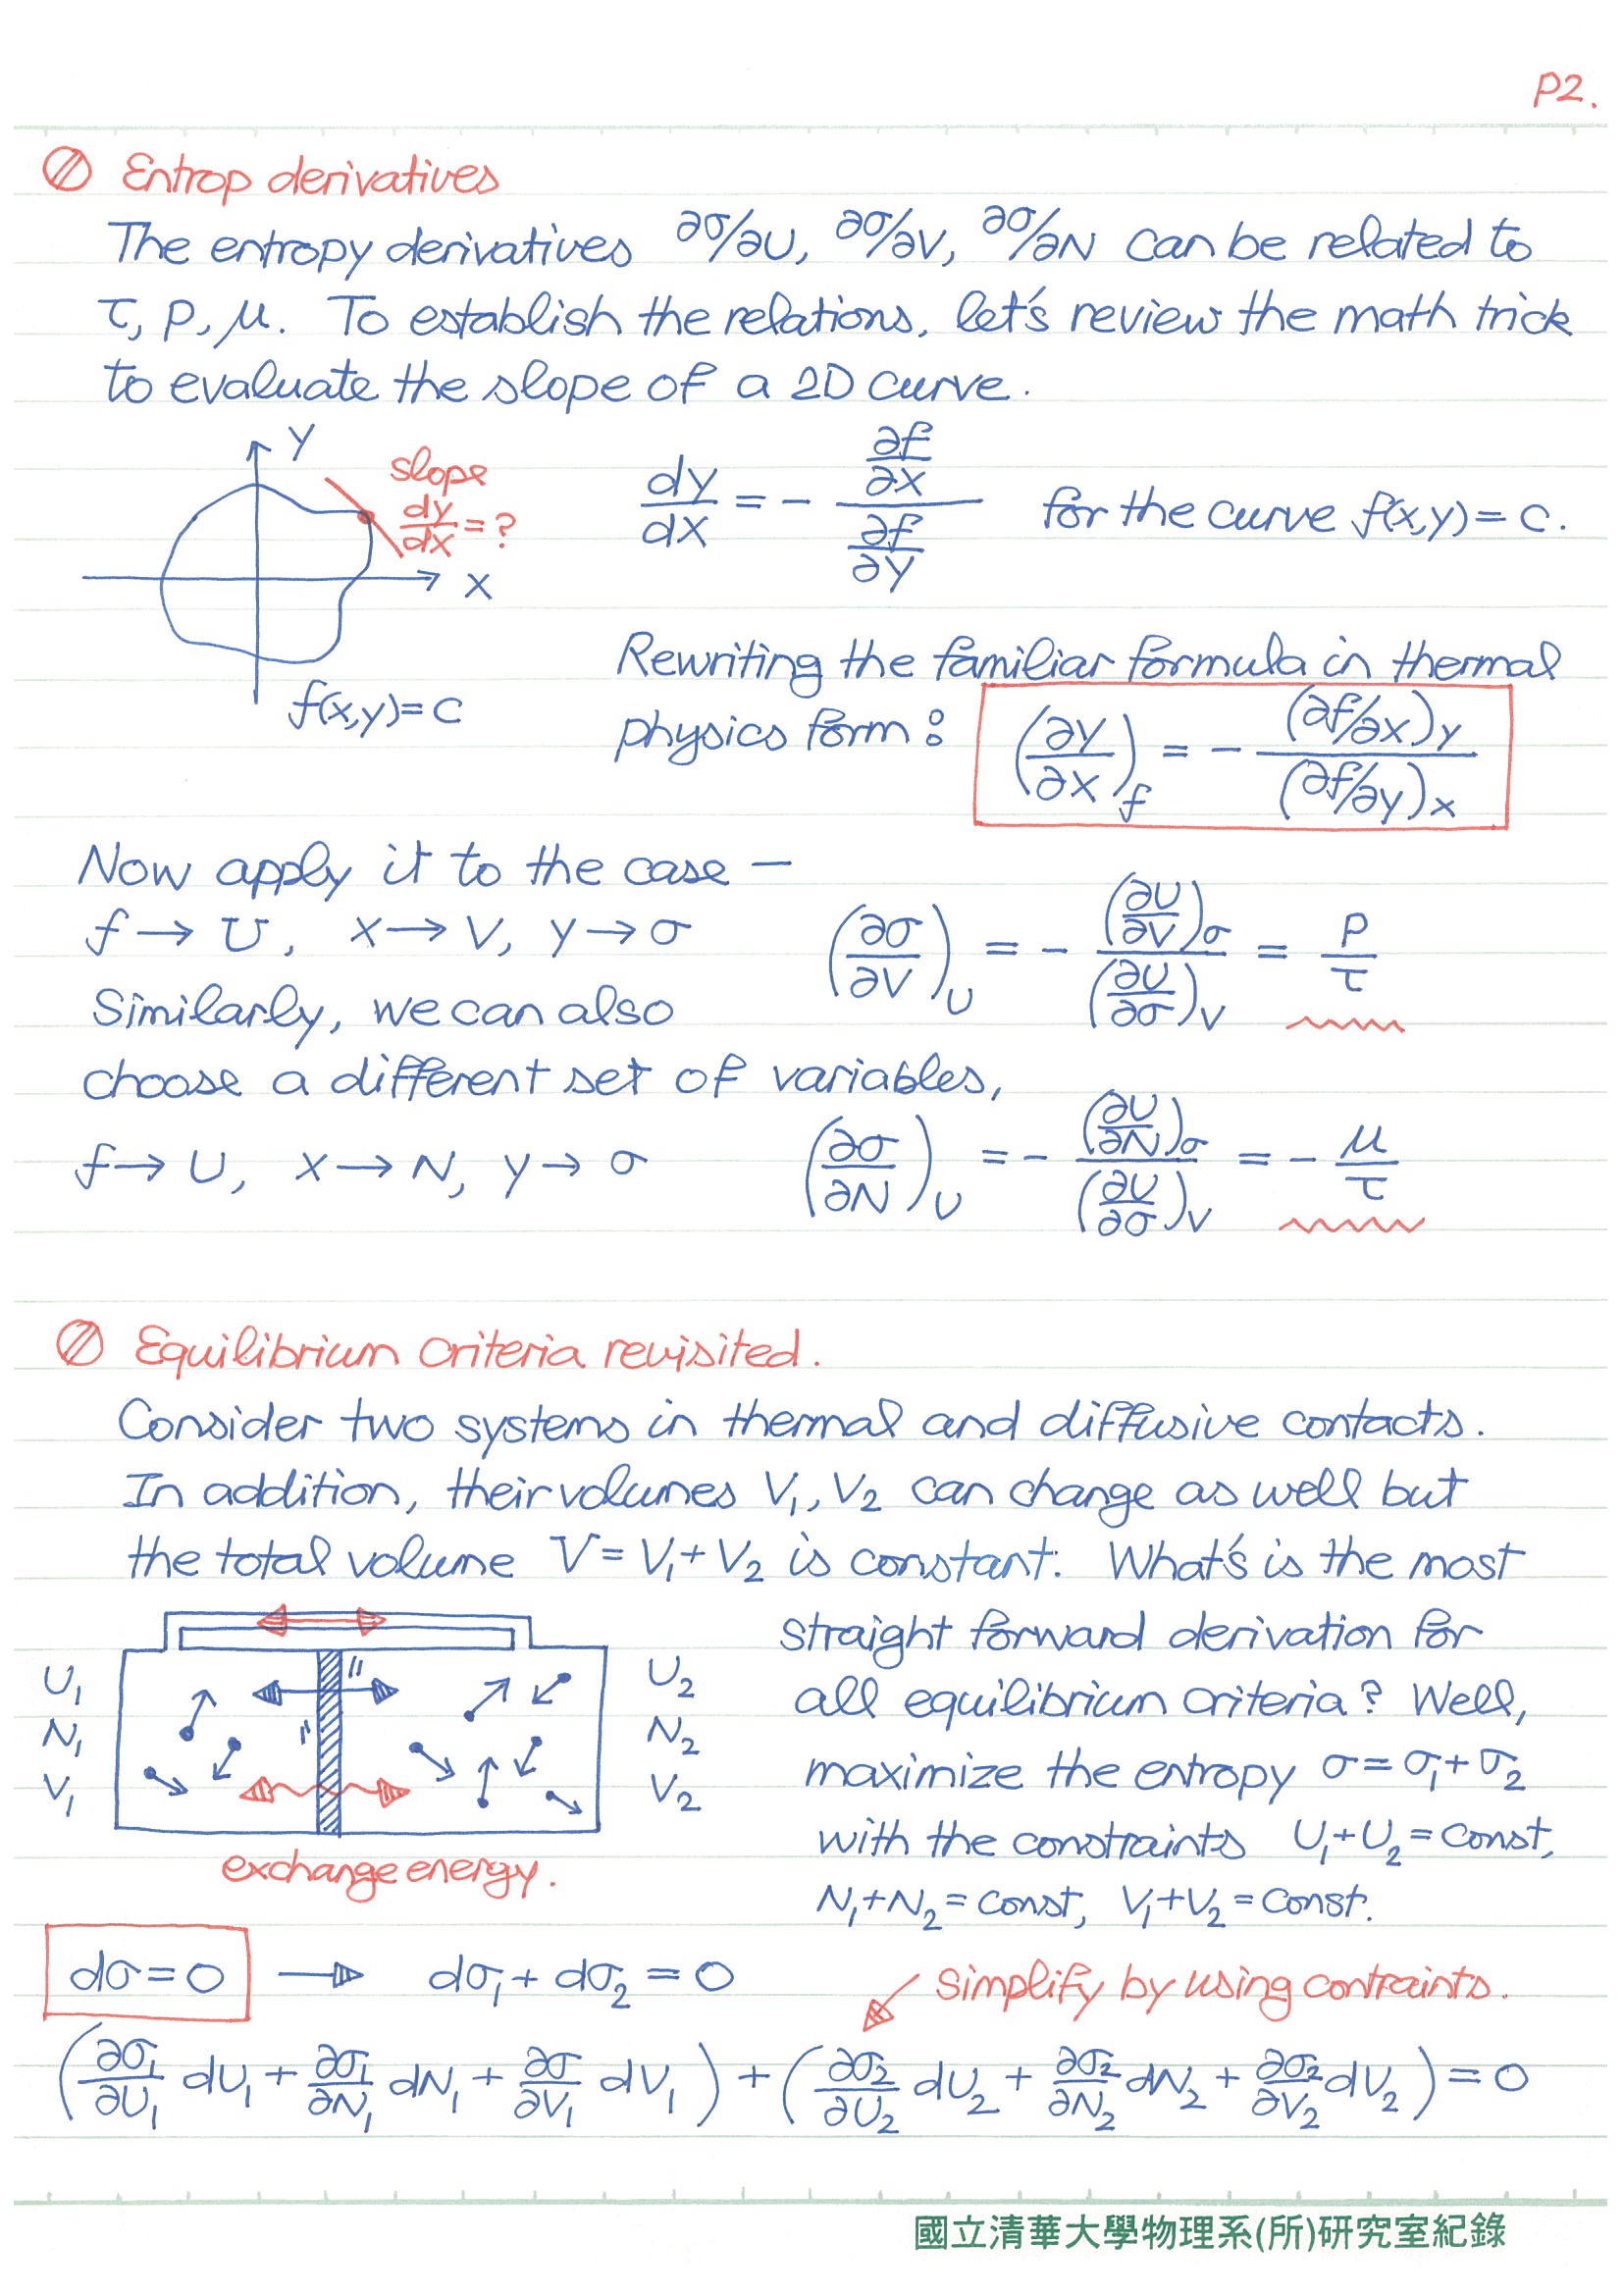 P2.
Entrop derivatives
The entropy derivatives ∂σ/∂U, ∂σ/∂V, ∂σ/∂N can be related to
τ, p, μ. To establish the relations, let's review the math trick
to evaluate the slope of a 2D curve.
y
slope
dy/dx = ?
x
f(x,y)=c
dy/dx = - (∂f/∂x)/(∂f/∂y) for the curve f(x,y)=c.
Rewriting the familiar formula in thermal
physics form: (∂y/∂x)_f = - (∂f/∂x)_y / (∂f/∂y)_x
Now apply it to the case —
f → U, x → V, y → σ (∂σ/∂V)_U = - (∂U/∂V)_σ / (∂U/∂σ)_V = p/τ
Similarly, we can also
choose a different set of variables,
f → U, x → N, y → σ (∂σ/∂N)_U = - (∂U/∂N)_σ / (∂U/∂σ)_V = - μ/τ
Equilibrium criteria revisited.
Consider two systems in thermal and diffusive contacts.
In addition, their volumes V₁, V₂ can change as well but
the total volume V = V₁+V₂ is constant. What's is the most
straight forward derivation for
all equilibrium criteria? Well,
maximize the entropy σ=σ₁+σ₂
with the constraints U₁+U₂=const,
N₁+N₂=const, V₁+V₂=const.
U₁
N₁
V₁
U₂
N₂
V₂
exchange energy.
dσ=0 → dσ₁+dσ₂=0
simplify by using contraints.
(∂σ₁/∂U₁ dU₁ + ∂σ₁/∂N₁ dN₁ + ∂σ/∂V₁ dV₁) + (∂σ₂/∂U₂ dU₂ + ∂σ₂/∂N₂ dN₂ + ∂σ₂/∂V₂ dV₂) = 0
國立清華大學物理系(所)研究室紀錄